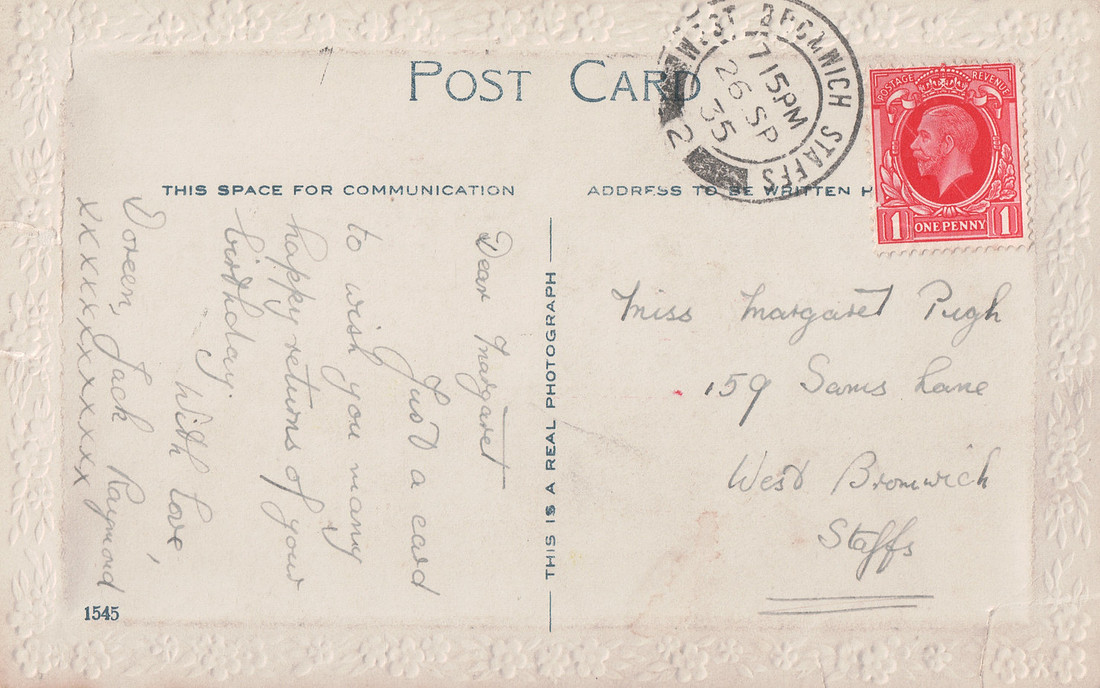 POST CARD
WEST BROMWICH STAFFS
7 15PM
26 SP
35
2
POSTAGE REVENUE
1 ONE PENNY 1
THIS SPACE FOR COMMUNICATION
ADDRESS TO BE WRITTEN H
THIS IS A REAL PHOTOGRAPH
Dear Margaret
Just a card
to wish you many
happy returns of your
birthday.
With Love,
Doreen, Jack Raymond
xxxxxxxxxxxx
Miss Margaret Pugh
159 Sams Lane
West Bromwich
Staffs
1545